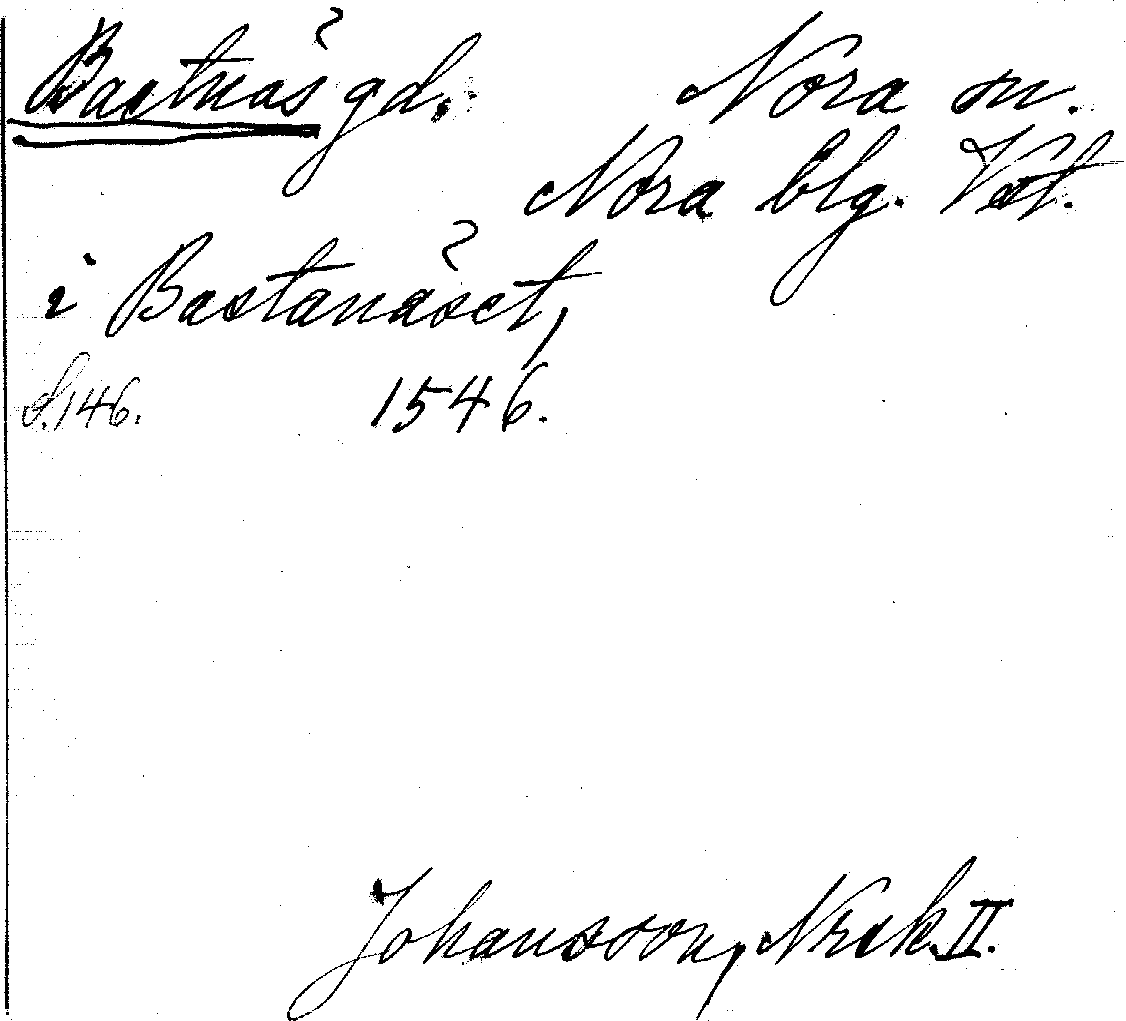 Bastnäs gd. Nora sn.
Nora blg. Vstl.
i Bastanäset,
S. 146. 1546.
Johansson, Nrsk II.